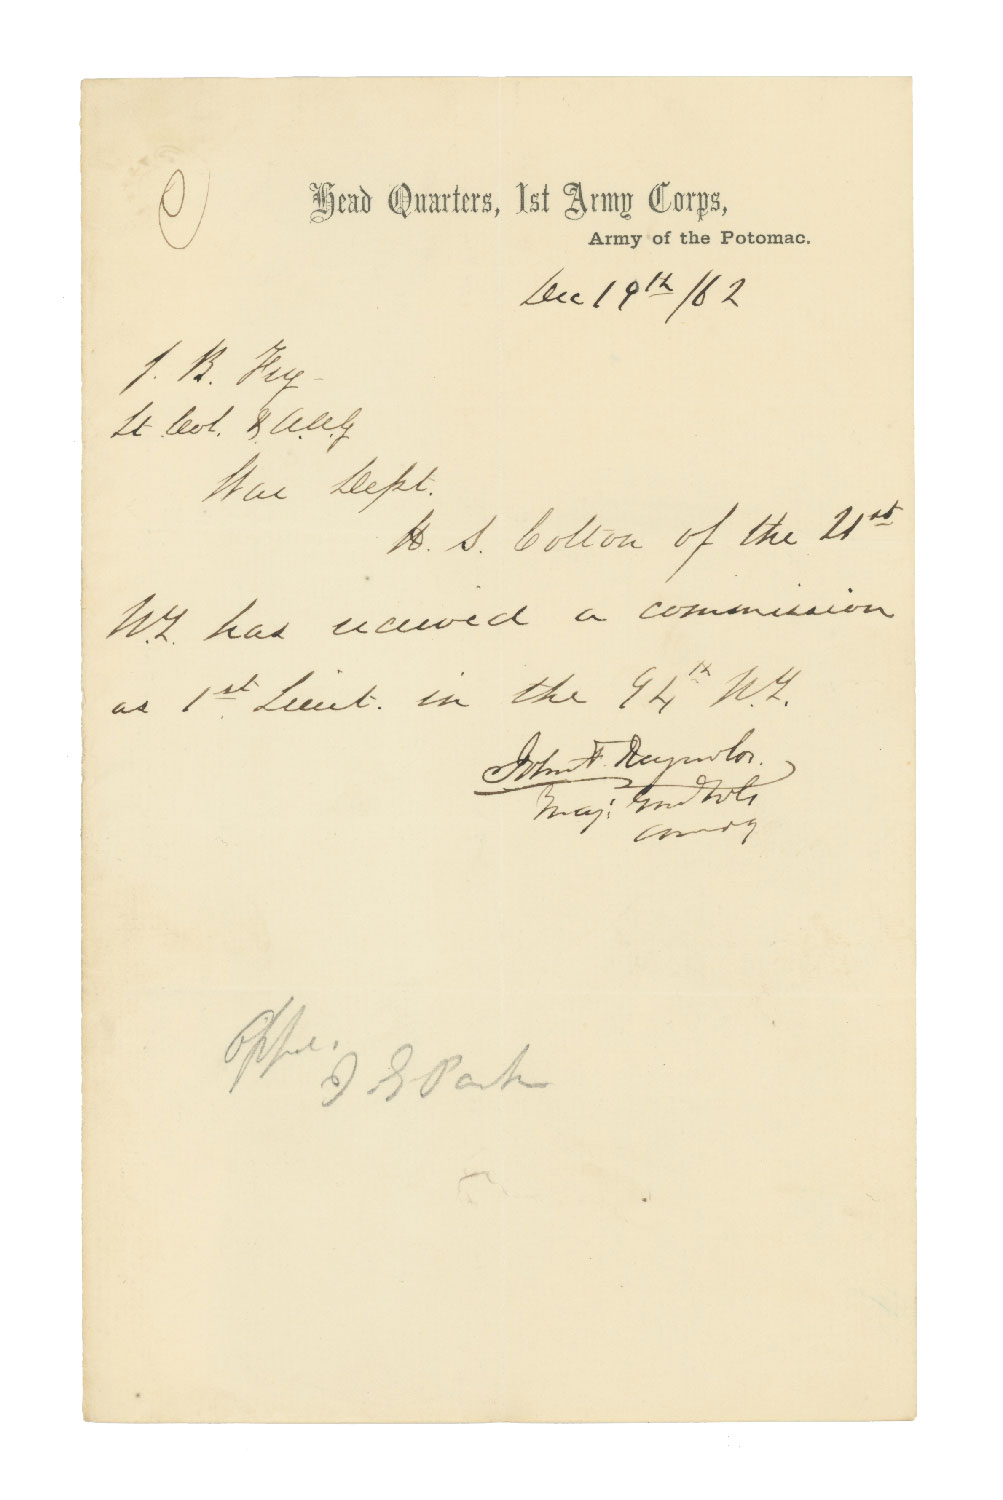 Head Quarters, 1st Army Corps,
Army of the Potomac.
Dec 19th /62
J. B. Fry
Lt. Col. & A.A.G
War Dept.
H. S. Colton of the 21st
N.Y. has received a commission
as 1st Lieut. in the 94th N.Y.
John F. Reynolds.
Maj: Genl Vols
Comdg
J G Park